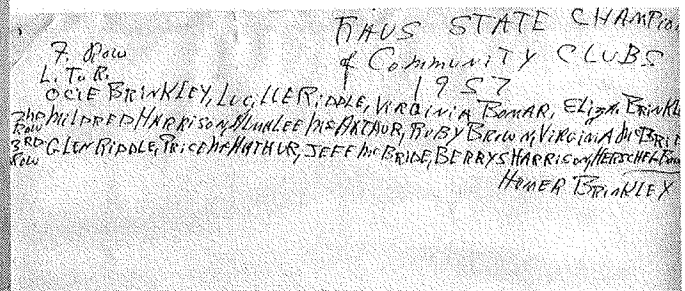 RAUS STATE CHAMPION
of COMMUNITY CLUBS
1957
F. Row
L. To R.
OCIE BRINKLEY, LUCILLE RIDDLE, VIRGINIA BOMAR, ELIZA. BRINKL
2nd Row MILDRED HARRISON, ALMALEE McARTHUR, RUBY BROWN, VIRGINIA McBRIDE
3RD Row GLEN RIDDLE, PRICE McARTHUR, JEFF McBRIDE, BERRYS HARRISON, HERSCHEL BOM
HOMER BRINKLEY